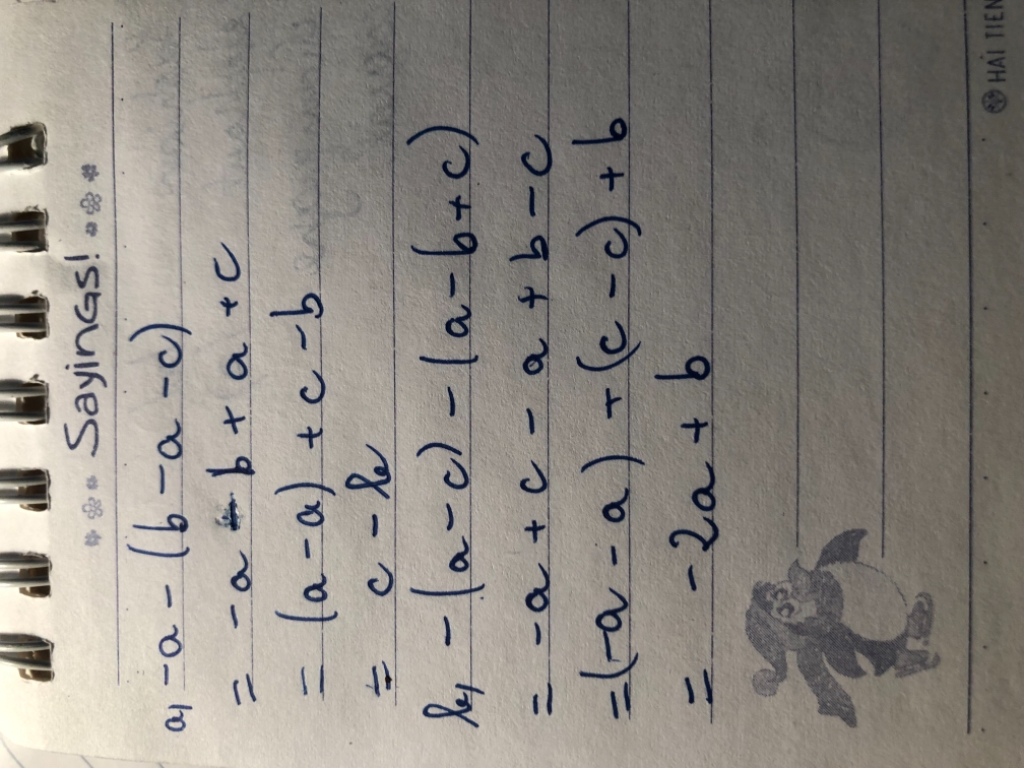 Sayings!
a, -a - (b - a - c)
= -a - b + a + c
= (a - a) + c - b
= c - b
b, - (a - c) - (a - b + c)
= -a + c - a + b - c
= (-a - a) + (c - c) + b
= -2a + b
HẢI TIẾN